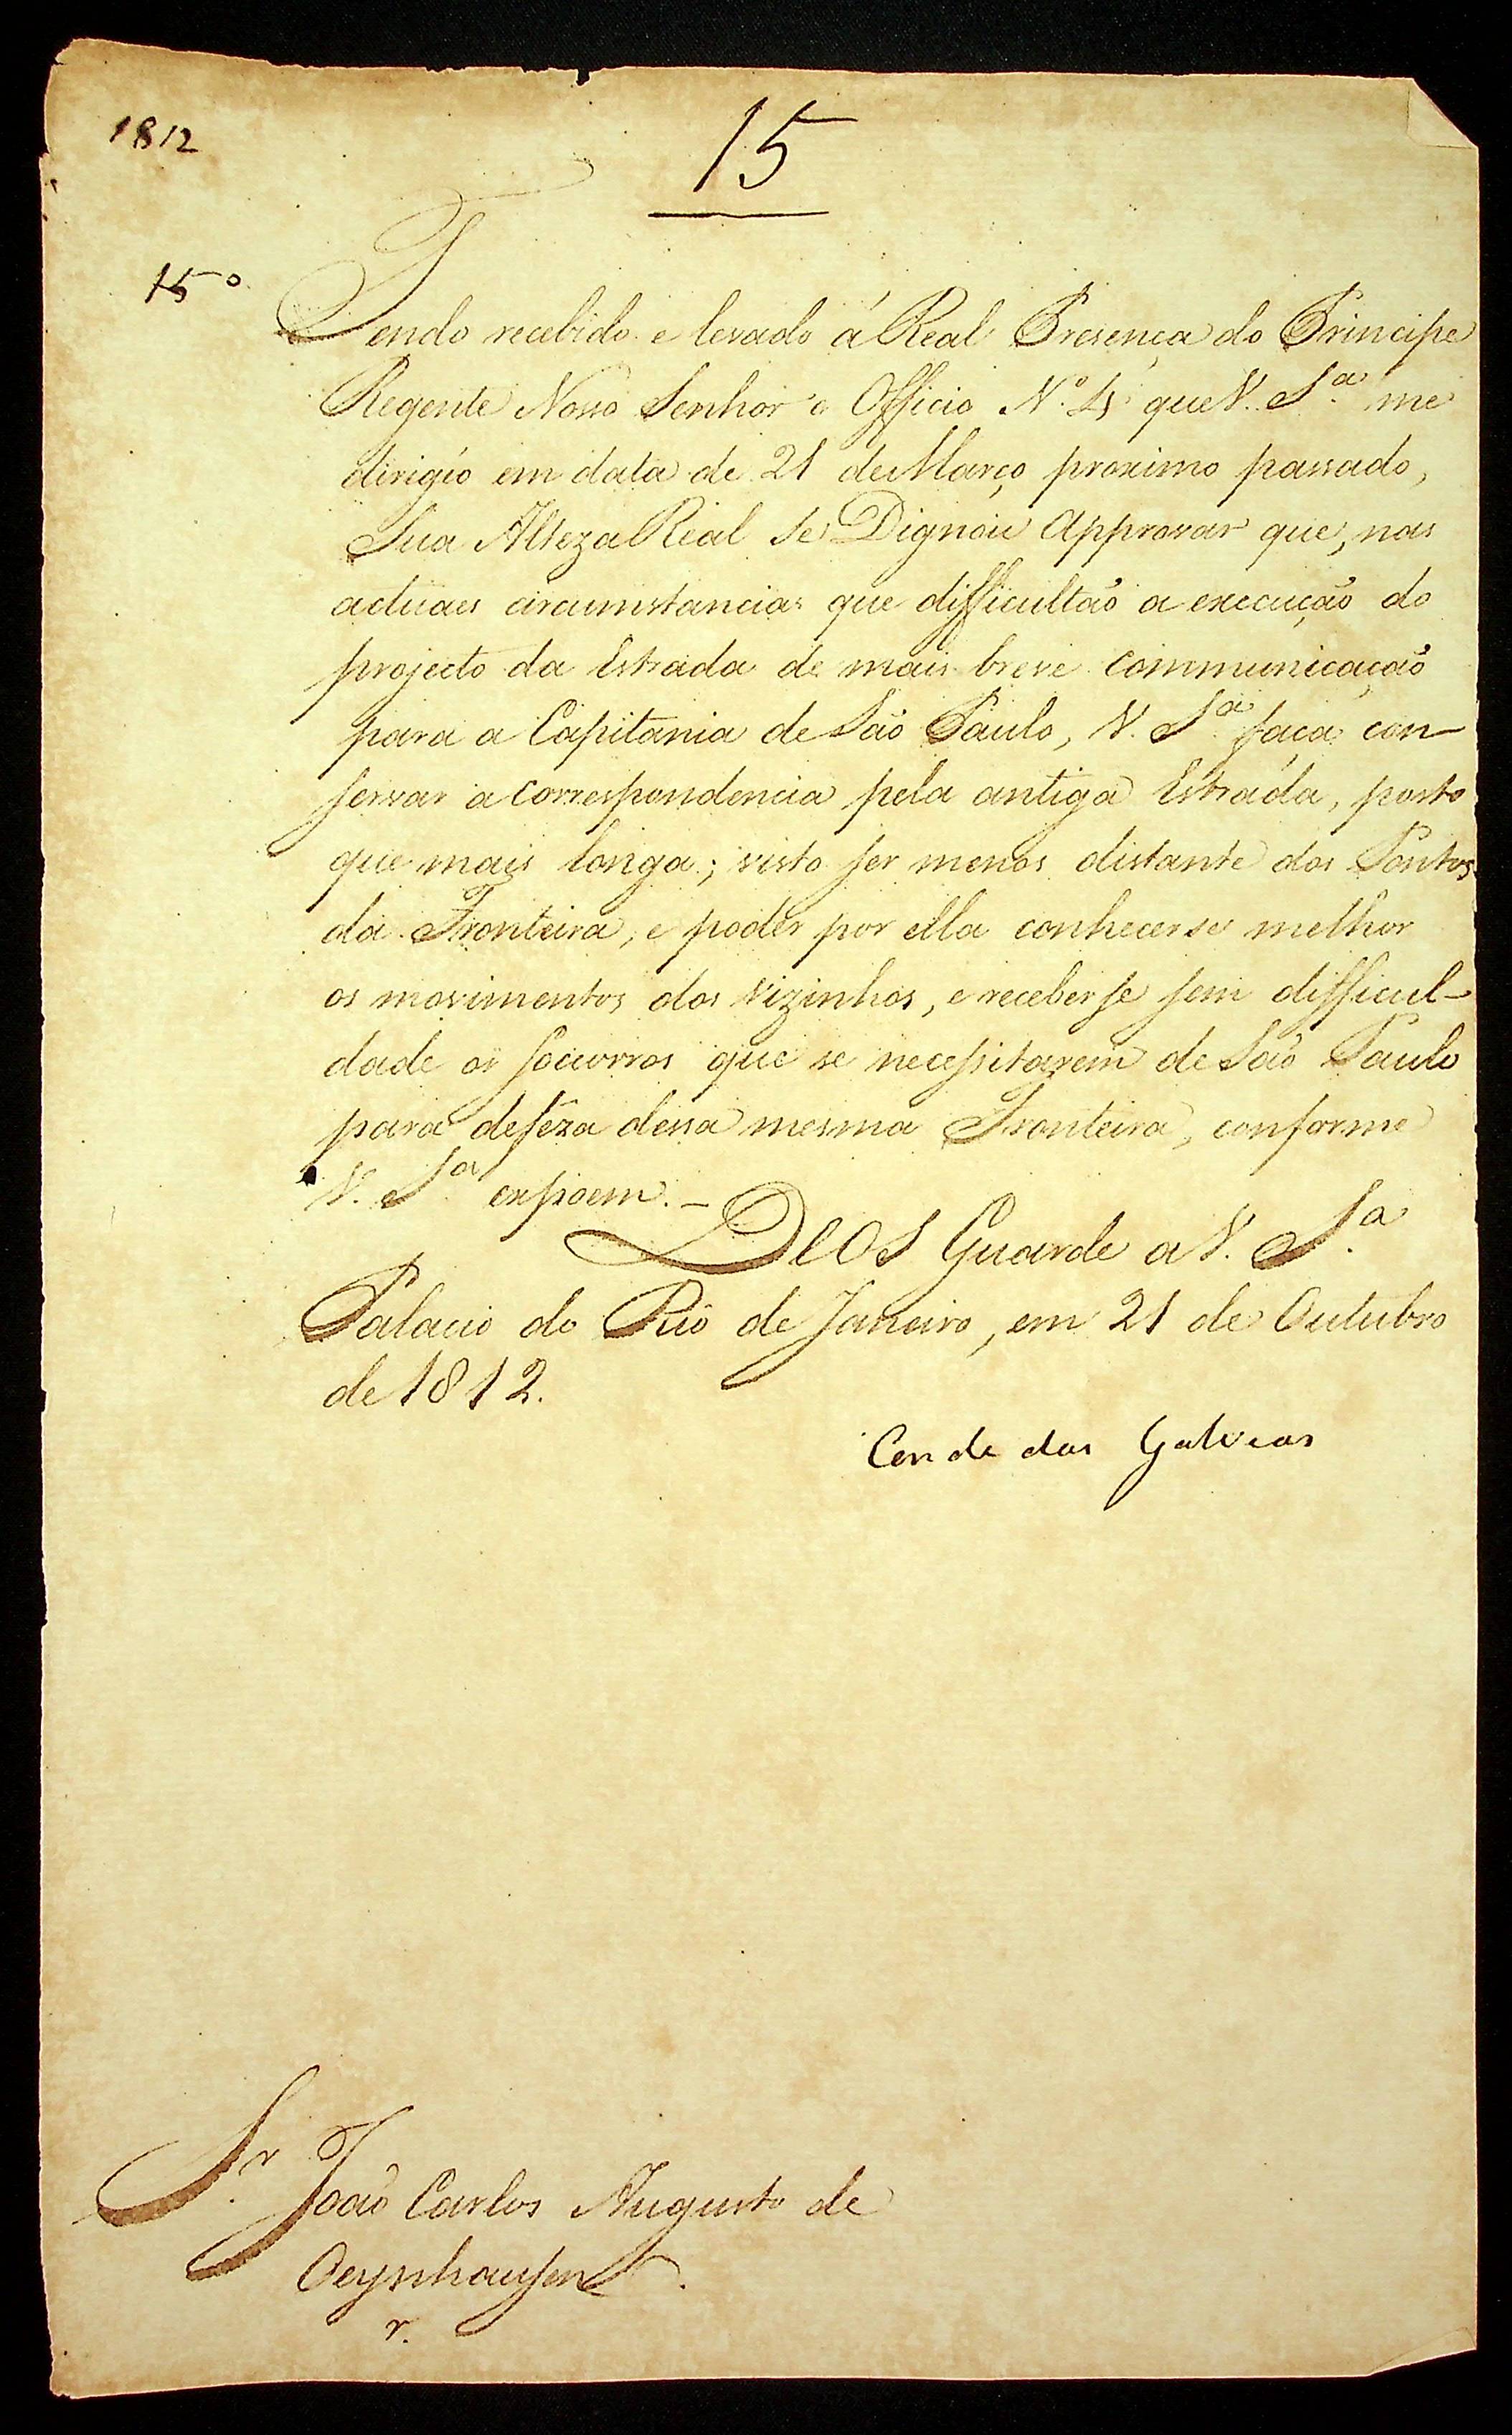 1812
15
15º
Tendo recebido e levado á Real Presença do Principe
Regente Nosso Senhor o Officio Nº 4 que V. Sª me
dirigío em data de 21 de Março proximo passado,
Sua Alteza Real Se Dignou Approvar que, nas
actuaes circumstancias que difficultão a execução do
projecto da Estrada de mais breve communicação
para a Capitania de São Paulo, V. Sª faça con-
servar a correspondencia pela antiga Estrada, posto
que mais longa; visto ser menos distante dos Pontos
da Fronteira, e poder por ella conhecerse melhor
os movimentos dos vizinhos, e receberse sem difficul-
dade os soccorros que se necessitarem de São Paulo
para defêza dessa mesma Fronteira, conforme
V. Sª expoem. -
Deos Guarde a V. Sª
Palacio do Rio de Janeiro, em 21 de Outubro
de 1812.
Conde das Galveas
Sr. João Carlos Augusto de
Oeynhausen.
r.